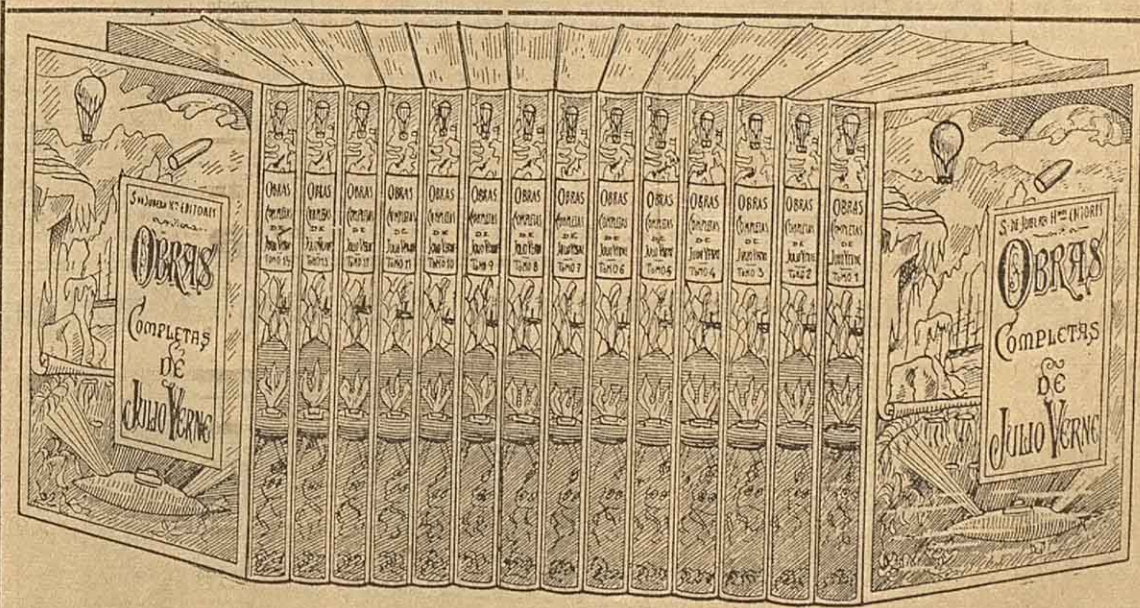 S. DE JUBERA Hnos EDITORES
OBRAS
COMPLETAS
DE
JULIO VERNE
OBRAS
COMPLETAS
DE
JULIO VERNE
TOMO
OBRAS
COMPLETAS
DE
JULIO VERNE
TOMO 13
OBRAS
COMPLETAS
DE
JULIO VERNE
TOMO 12
OBRAS
COMPLETAS
DE
JULIO VERNE
TOMO 11
OBRAS
COMPLETAS
DE
JULIO VERNE
TOMO 10
OBRAS
COMPLETAS
DE
JULIO VERNE
TOMO 9
OBRAS
COMPLETAS
DE
JULIO VERNE
TOMO 8
OBRAS
COMPLETAS
DE
JULIO VERNE
TOMO 7
OBRAS
COMPLETAS
DE
JULIO VERNE
TOMO 6
OBRAS
COMPLETAS
DE
JULIO VERNE
TOMO 5
OBRAS
COMPLETAS
DE
JULIO VERNE
TOMO 4
OBRAS
COMPLETAS
DE
JULIO VERNE
TOMO 3
OBRAS
COMPLETAS
DE
JULIO VERNE
TOMO 2
OBRAS
COMPLETAS
DE
JULIO VERNE
TOMO 1
S. DE JUBERA Hnos EDITORES
OBRAS
COMPLETAS
DE
JULIO VERNE